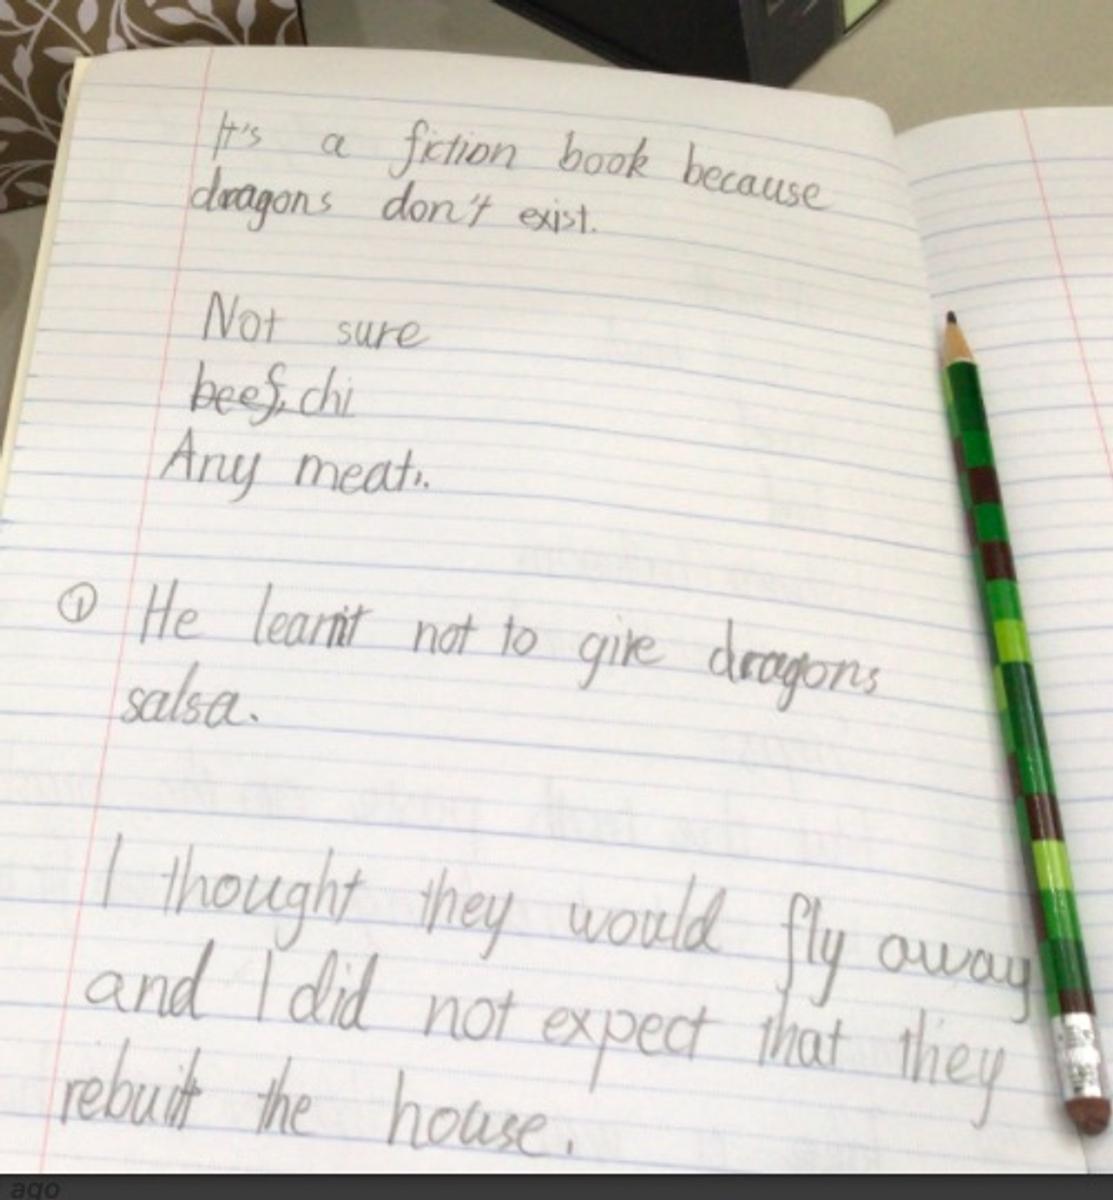 It's a fiction book because
dragons don't exist.
Not sure
beef, chi
Any meat.
① He learnt not to give dragons
salsa.
I thought they would fly away
and I did not expect that they
rebuilt the house.
ago